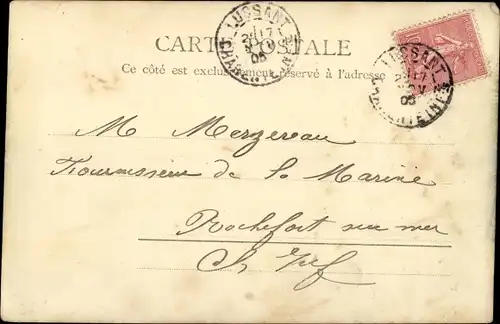 CARTE POSTALE
Ce côté est exclusivement réservé à l'adresse
LUSSANT
17
05
LUSSANT
17
05
M Mergereau
Fournisseur de la Marine
Rochefort sur mer
Ch Inf